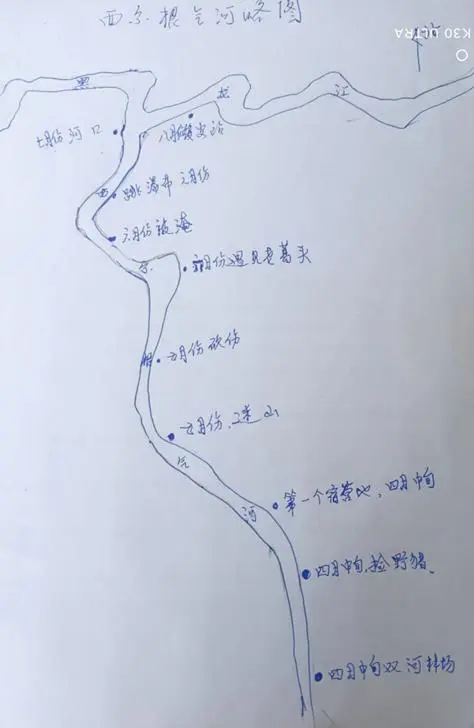 西尔根气河略图
K30 ULTRA
北
黑
龙
江
七月份河口
八月份鸥浦站
西
跳瀑布 六月份
六月份被淹
尔
六月份遇见老葛头
根
五月份砍伤
五月份迷山
气
第一个宿营地，四月中旬
河
四月中旬.捡野猪.
四月中旬双河林场